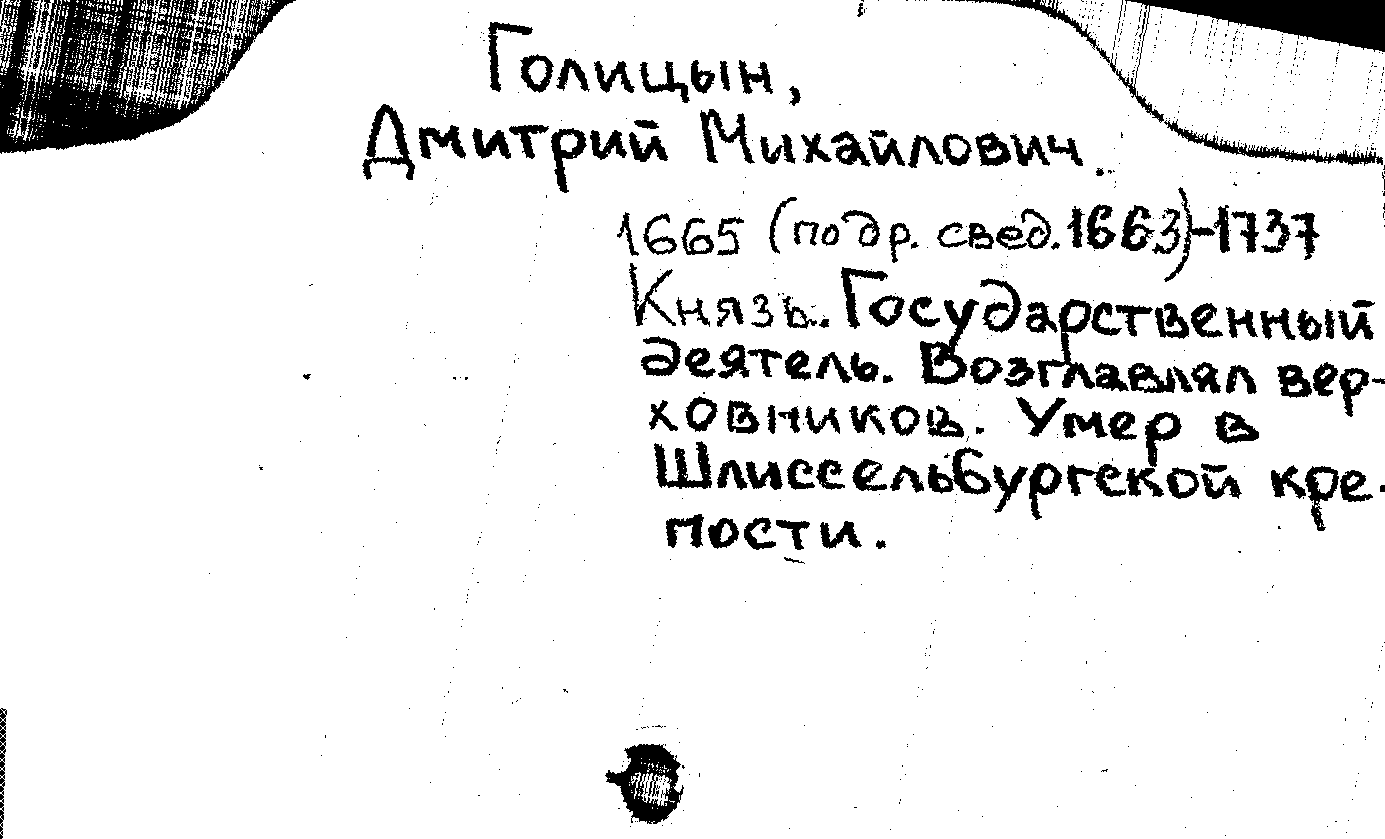 Голицын,
Дмитрий Михайлович.
1665 (по др. свед. 1663)-1737
Князь. Государственный
деятель. Возглавлял вер-
ховников. Умер в
Шлиссельбургской кре-
пости.